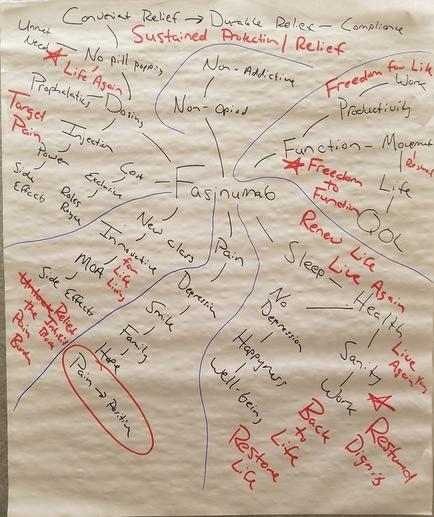 Convenient Relief → Durable Relief - Compliance
Sustained Protection/Relief
Unmet
Need
No pill popping
Life Again
Non-Addictive
Non-Opiod
Freedom for Life
Work
Productivity
Prophalatics
Dosing
Target
Pain
Injection
Power
Side
Effects
Cost
Exclusive
Fasinumab
Function - Movement
Freedom
To
Function
Life
QOL
New class
Innovative
MOA
Side Effects
Pain
Depression
Smile
Family
Hope
Pain → Positive
Sleep
Health
Sanity
Work
No
Depression
Happyness
Well-being
Renew Life
Live Again
Live
Again
Restored
Dignity
Back
to
Life
Restore
Life